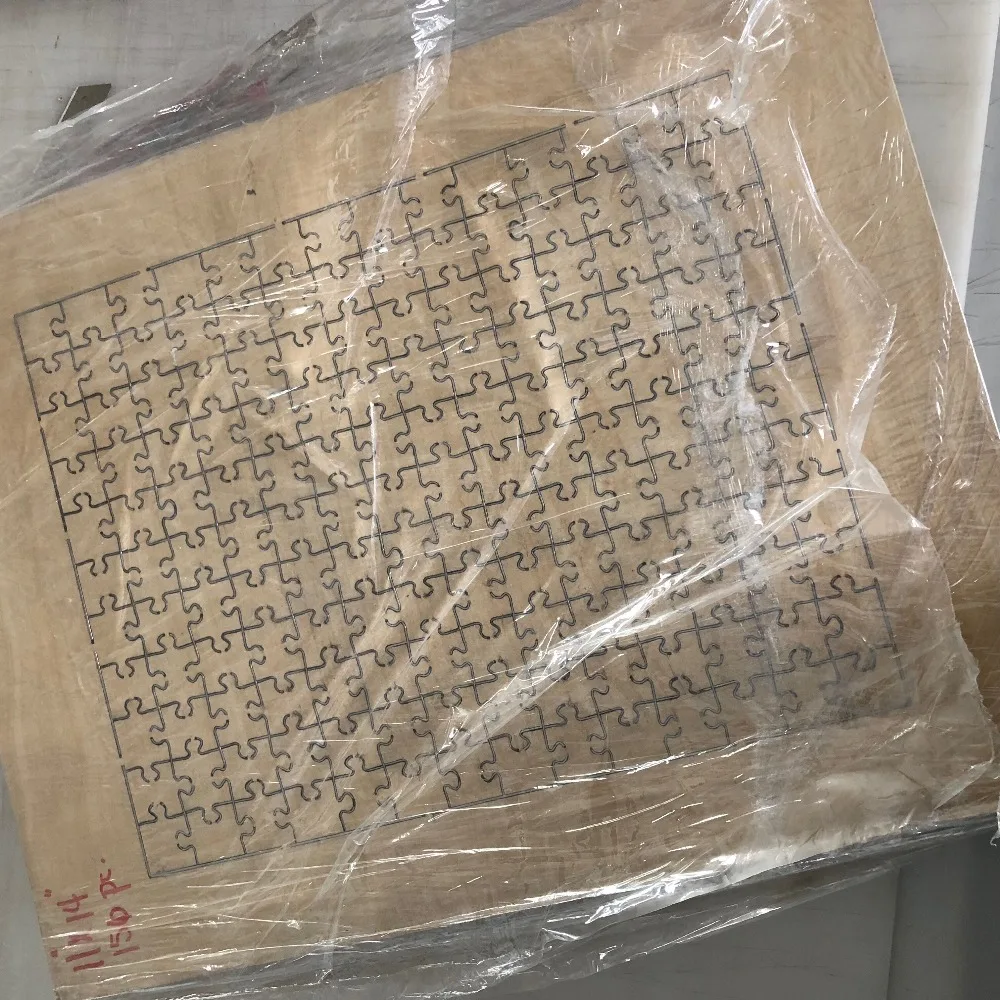 11"x14"
150 pc.